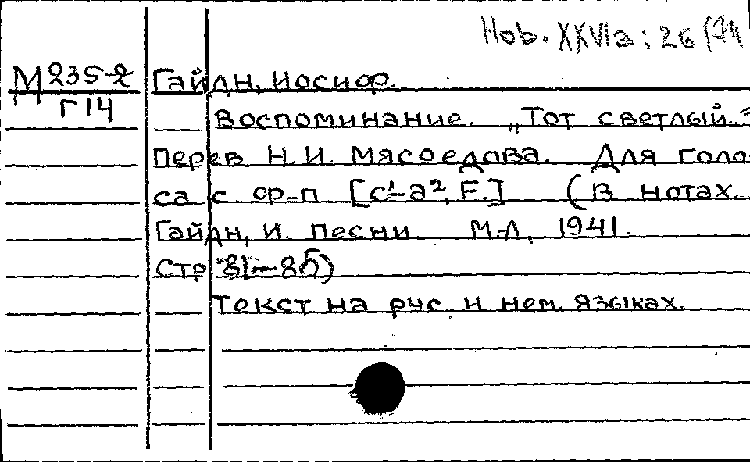 Hob. XXVIa: 26
М 235-2 Гайдн, Иосиф.
Г14
Воспоминание. „Тот светлый..."
Перев Н. И. Мясоедова. Для голо-
са с ф-п [c¹-a², F.] (В нотах.
Гайдн, И. Песни М-Л, 1941.
Стр 81-85)
Текст на рус. и нем. языках.